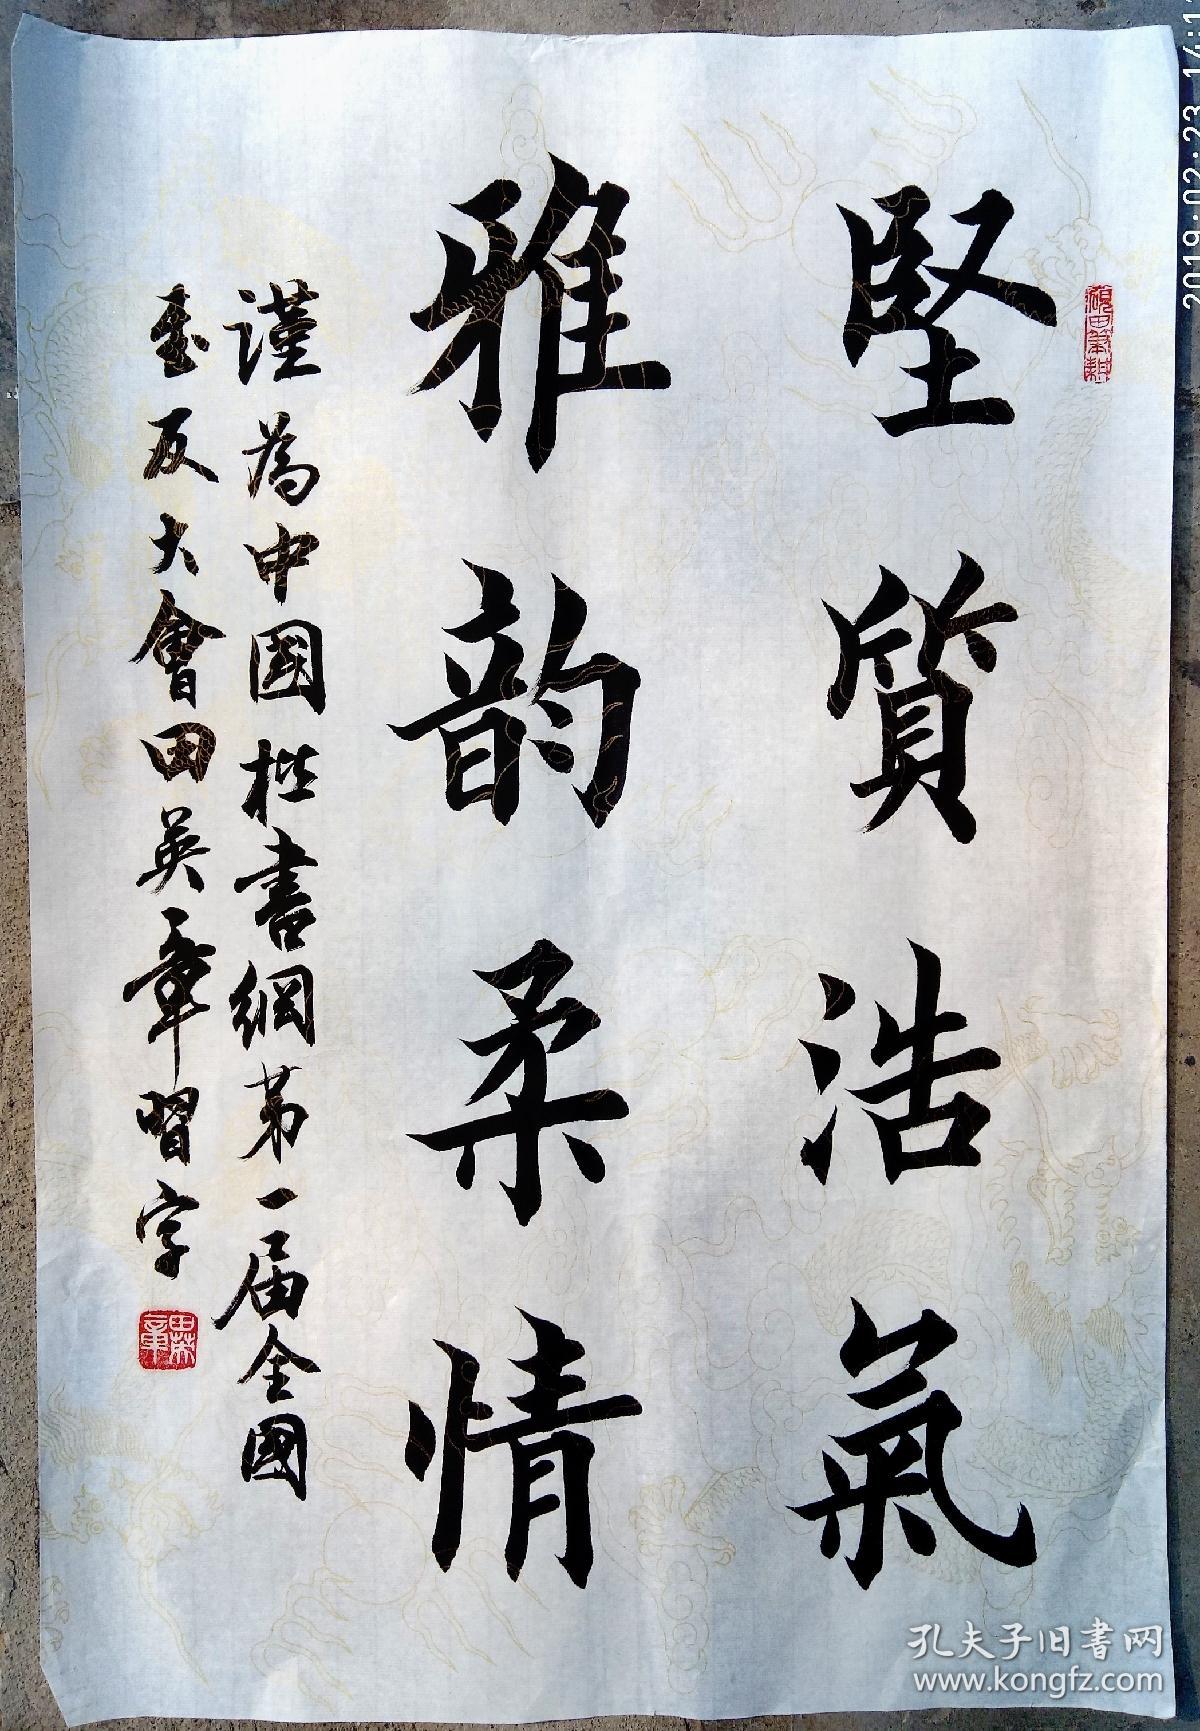 堅質浩氣
雅韵柔情
謹為中國楷書網第一届全國
友大會田英章習字
2019.02.23 14:1
孔夫子旧書网
www.kongfz.com